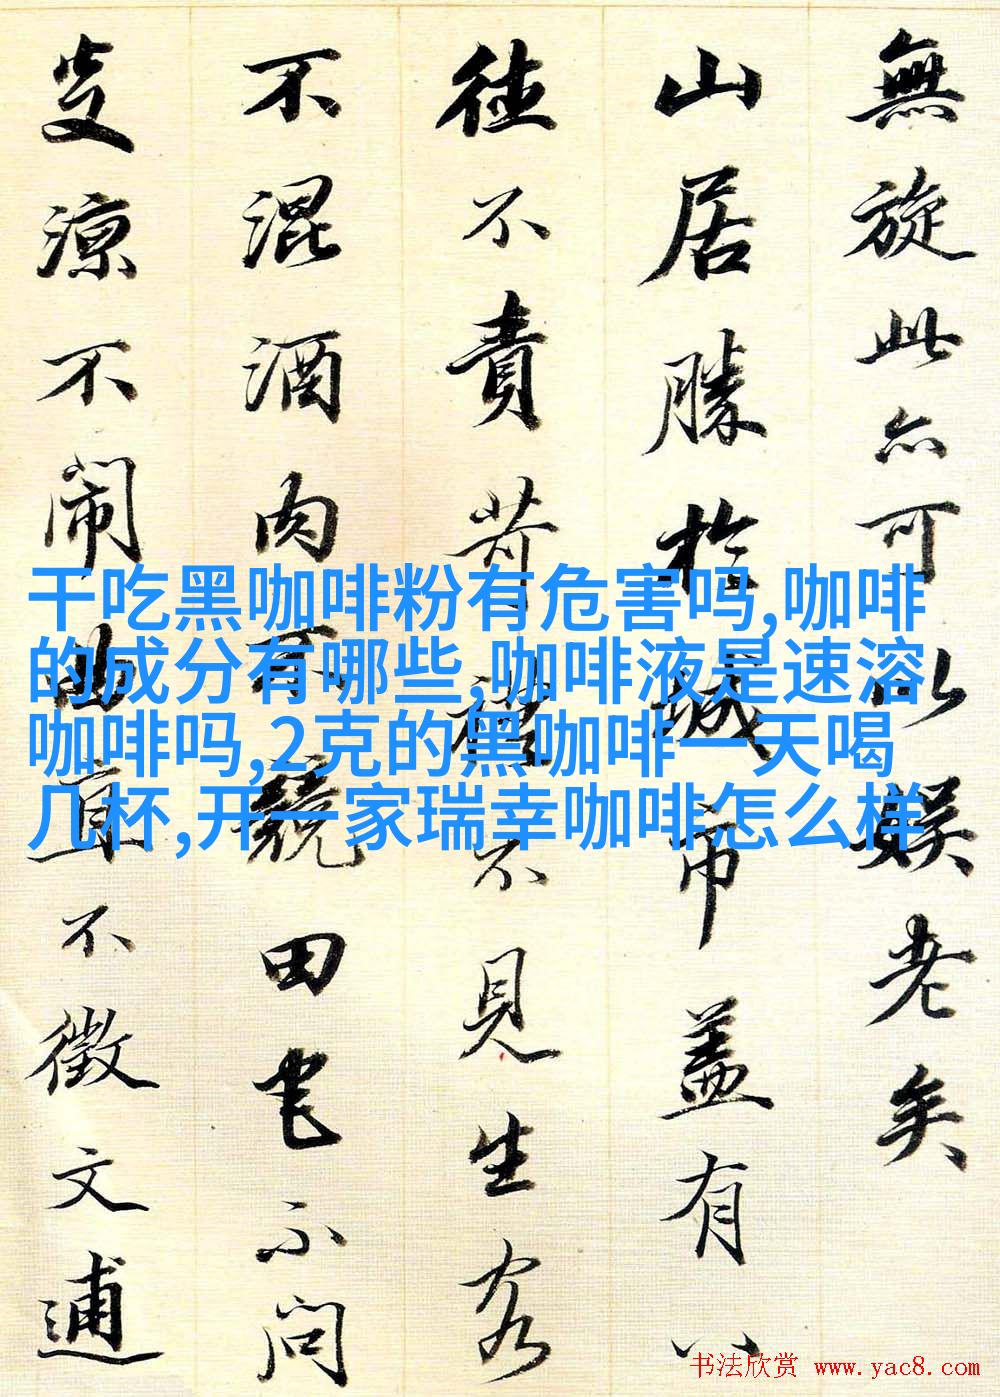 無旋此亦可以娱老矣
山居勝於城市盖有八
德不責苛禮不見生客
不混酒肉不競田宅不問
炎凉不闹曲直不徵文逋
干吃黑咖啡粉有危害吗,咖啡
的成分有哪些,咖啡液是速溶
咖啡吗,2克的黑咖啡一天喝
几杯,开一家瑞幸咖啡怎么样
书法欣赏 www.yac8.com